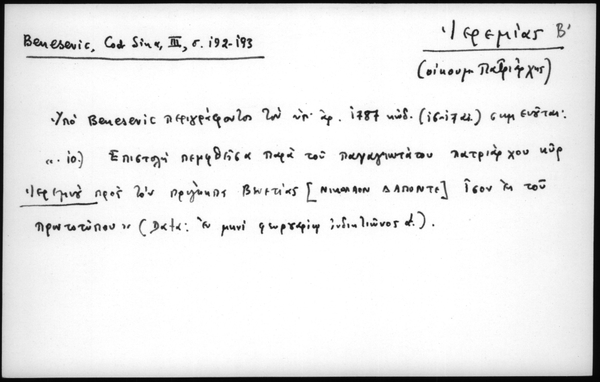 Benesevic, Cod Sina, III, σ. 192-193
Ἱερεμίας Β'
(οἰκουμ. Πατριάρχης)
Ὑπό Benesevic περιγράφοντος τόν ὑπ' ἀρ. 1787 κώδ. (16-17 αἰ.) σημειοῦται:
«. 10.) Ἐπιστολή πεμφθεῖσα παρά τοῦ παναγιωτάτου πατριάρχου κύρ
Ἱερεμίου πρός τόν πρίγκιπα Βενετίας [ΝΙΚΟΛΑΟΝ ΔΑΠΟΝΤΕ] ἴσον ἐκ τοῦ
πρωτοτύπου» (Data: ἐν μηνί φευρουαρίῳ ἰνδικτιῶνος α.).